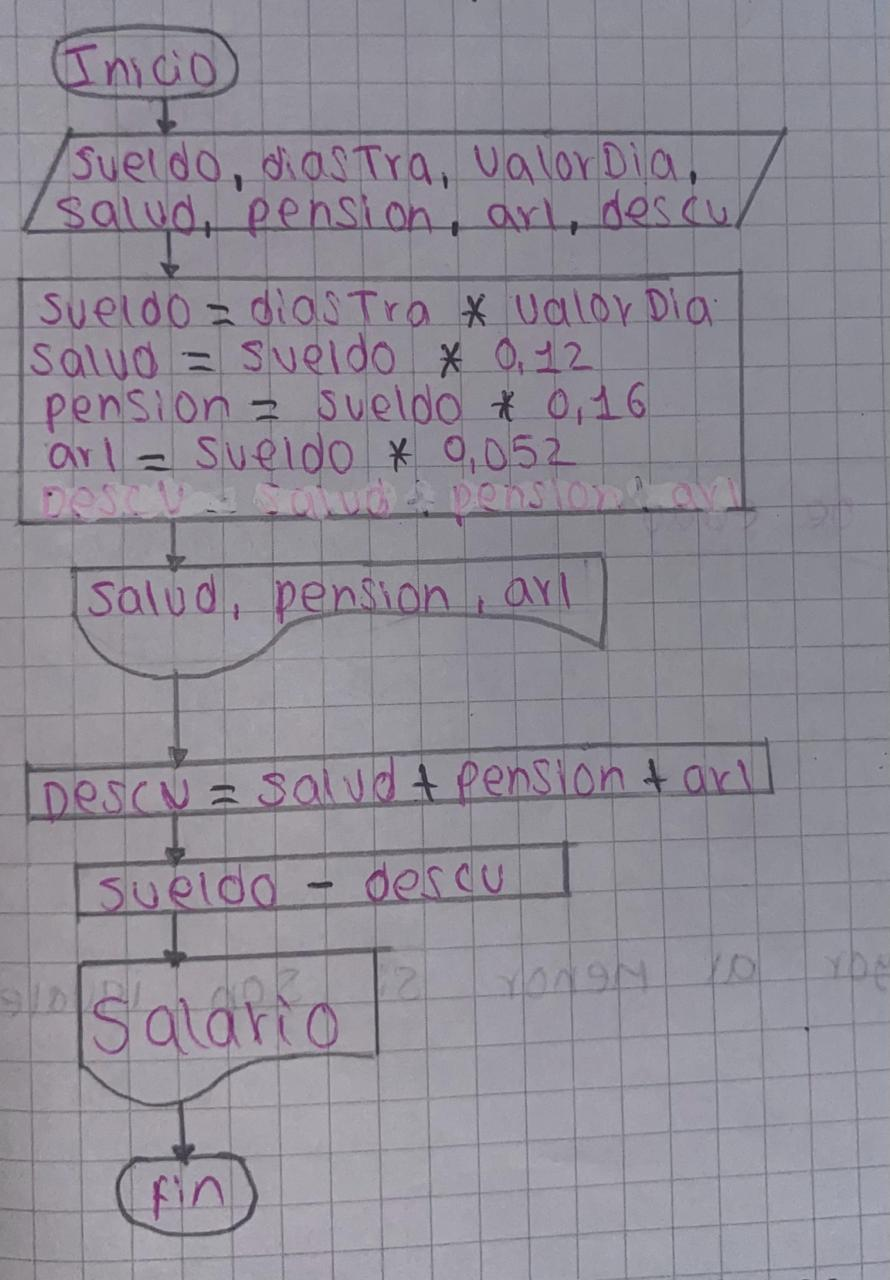 Inicio
sueldo, diasTra, valorDia,
salud, pension, arl, descu
sueldo = diasTra * valorDia
salud = sueldo * 0,12
pension = sueldo * 0,16
arl = sueldo * 0,052
Descu = salud + pension + arl
salud, pension, arl
Descu = salud + pension + arl
sueldo - descu
Salario
fin